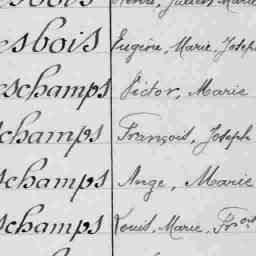 esbois Eugène, Marie, Joseph
eschamps Victor, Marie
schamps François, Joseph
schamps Ange, Marie
schamps Louis, Marie, Frois